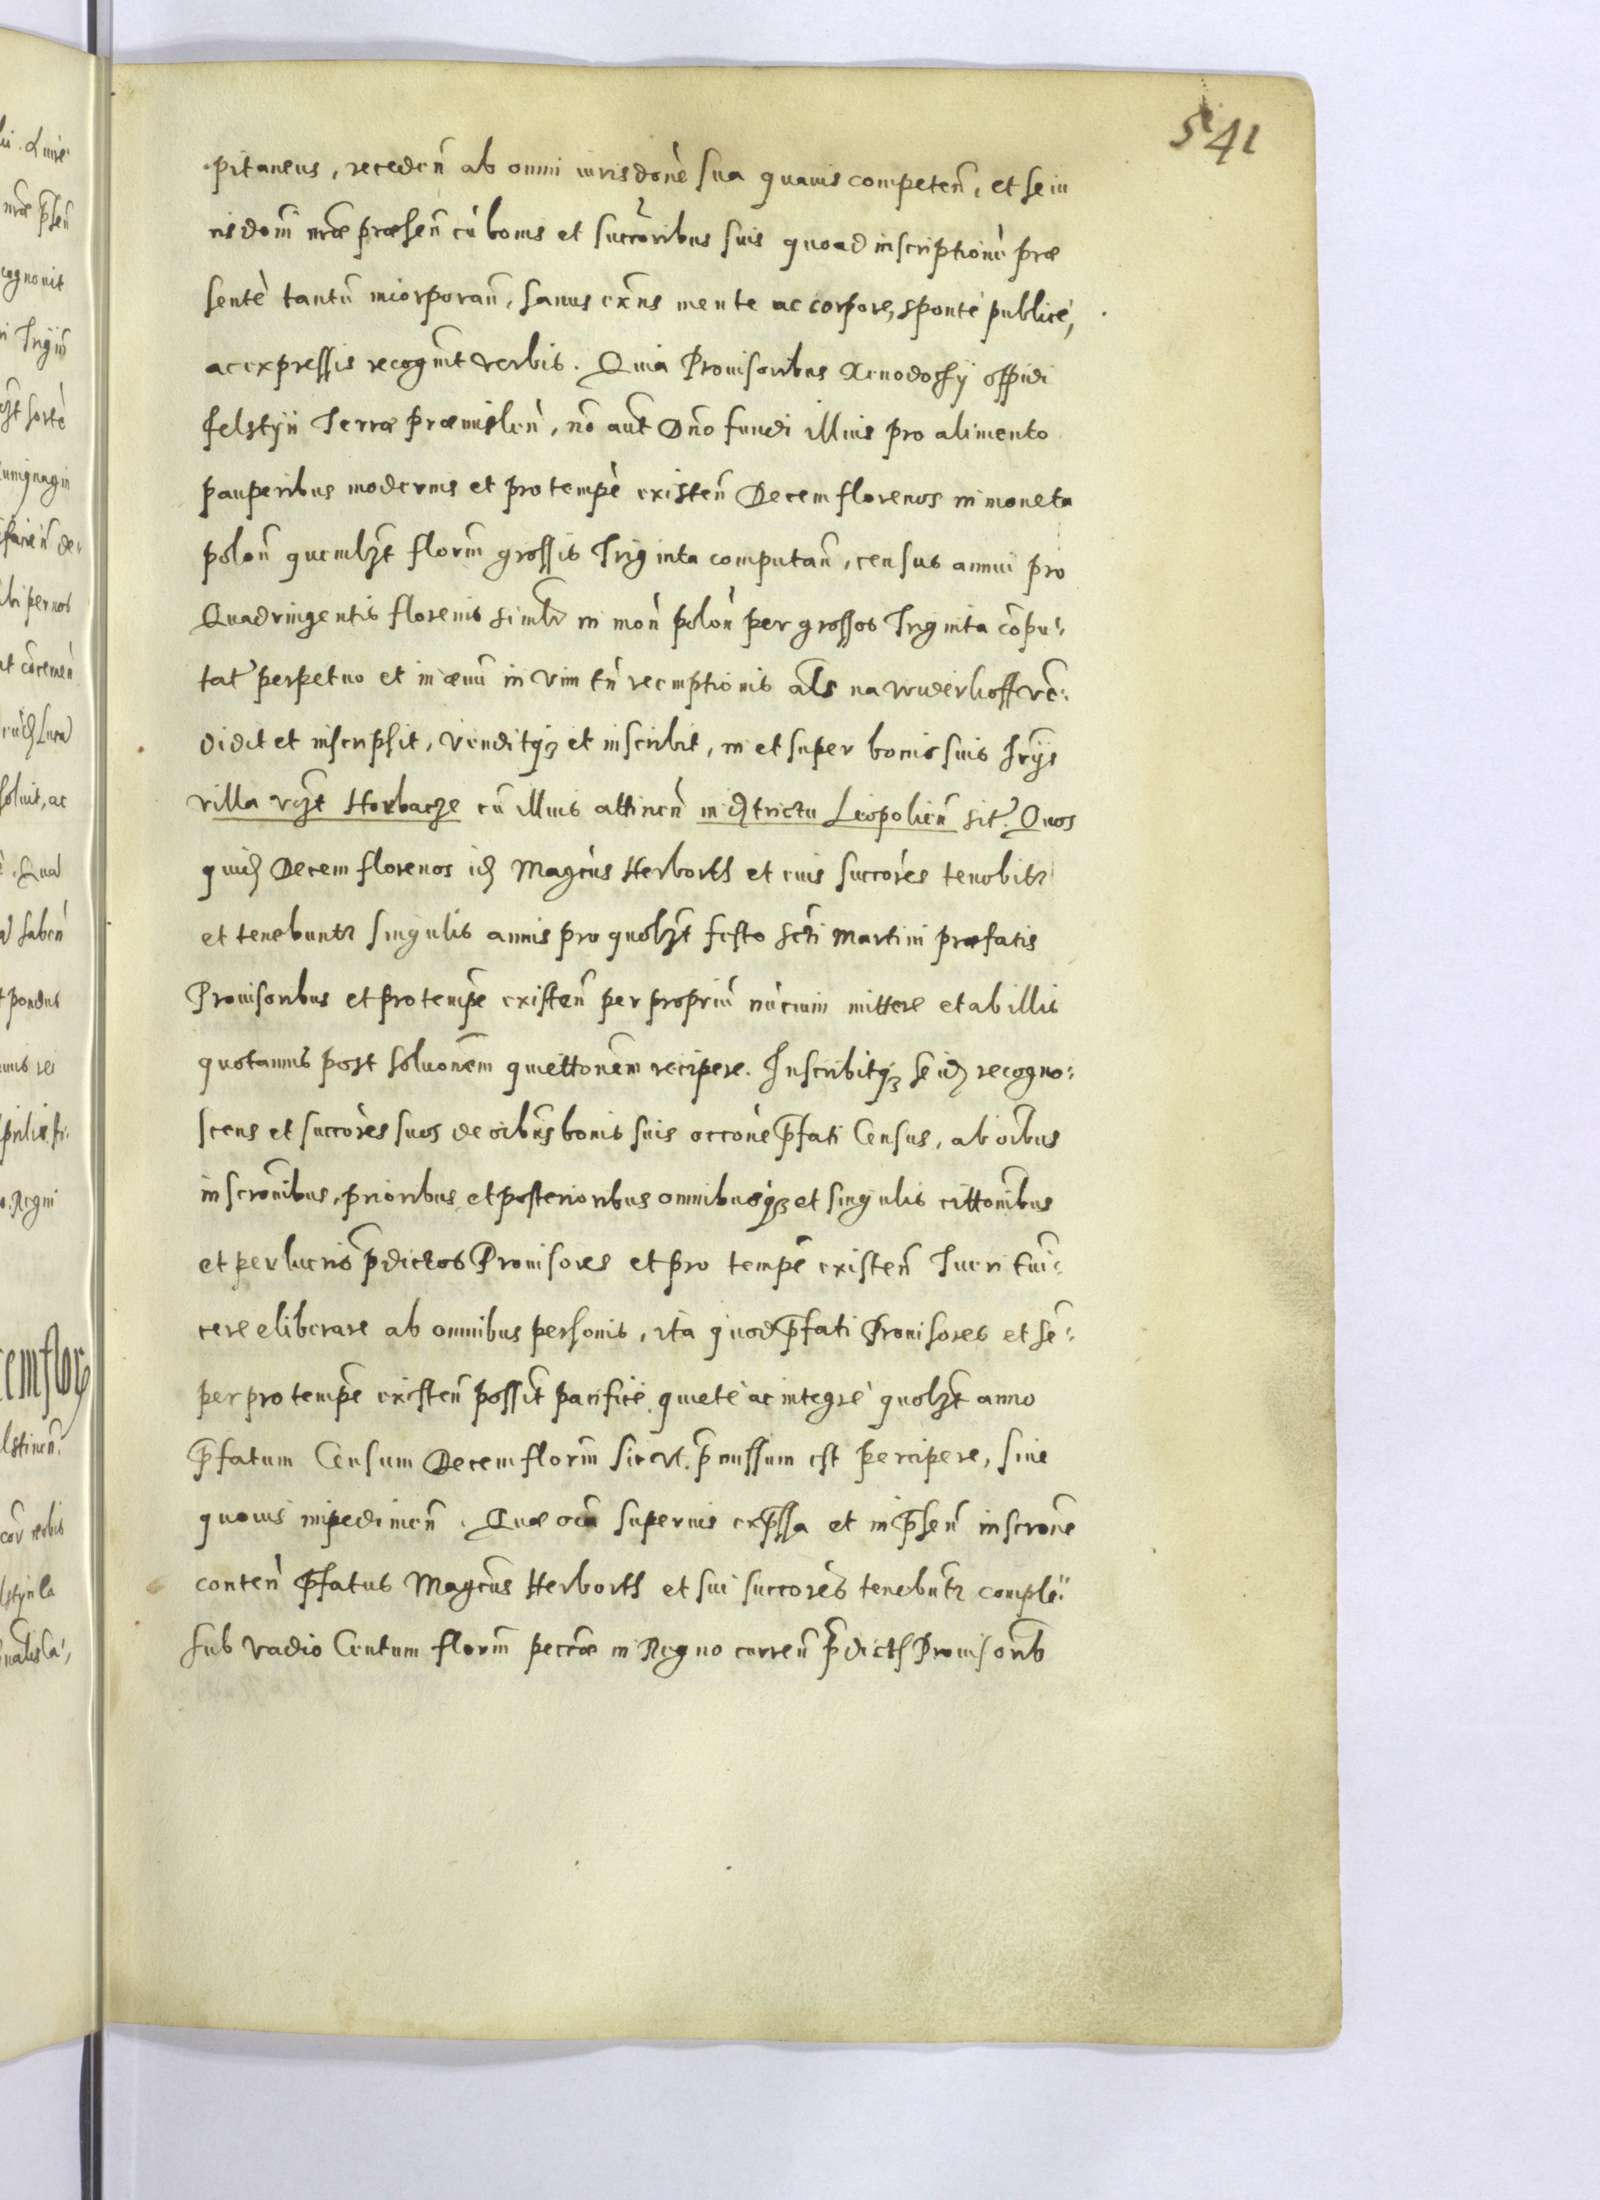 541
pitaneus, receden̄ ab omni iurisdonè sua quauis competen̄, et se iu
risdoni nrae praesen̄ cū bonis et succoribus suis quoad inscriptionē prae
sentē tantū incorporan̄, sanus exn̄s mente ac corpore, sponte publicè,
ac expressis recognit verbis. Quia Prouisoribus Xenodochij oppidi
felstÿn Terrae praemislen̄, nō aut Dno fundi illius pro alimento
pauperibus modernis et pro tempè existen̄ Decem florenos in moneta
polon̄ quemlzt florm̄ grossis Triginta computan̄, census annui pro
Quadringentis florenis simlr in mon̄ polon̄ per grossos Triginta cōpu:
tat perpetuo et in aeuū in vim tn̄ reemptionis als na wuderkoff ven:
didit et inscripsit, venditqȝ et inscribit, in et super bonis suis hrijs
villa vzt Horbacze cū illius attinen̄ in districtu Leopolien̄ sit. Quos
quid Decem florenos id Magcūs Herborth et eius succōres tenebitr
et tenebuntr singulis annis pro quolzt festo scti Martini praefatis
Prouisoribus et pro tempe existen̄ per propriū nūcium mittere et ab illis
quotannis post soluonem quiettonem recipere. Inscribitqȝ se id recogno:
scens et succōres suos de oibus bonis suis occōne p̄fati Census, ab oibus
inscronibus, prioribus et posterioribus omnibusqȝ et singulis cittonibus
et per lucris p̄dictos Prouisores et pro tempe existen̄ Tueri Eui:
cere eliberare ab omnibus personis, ita quod p̄fati Prouisores et sē:
per pro tempe existen̄ possint pacificè quietè ac integrè quolzt anno
p̄fatum Censum Decem florm̄ sicut p̄missum est percipere, sine
quouis impedimen̄. Quae oia superius exp̄ssa et in p̄sen̄ inscrone
conten̄ p̄fatus Magcūs Herborth et sui succōres tenebntr complē"
sub vadio Centum florm̄ peccae in Regno curren̄ p̄dicts Prouisorib